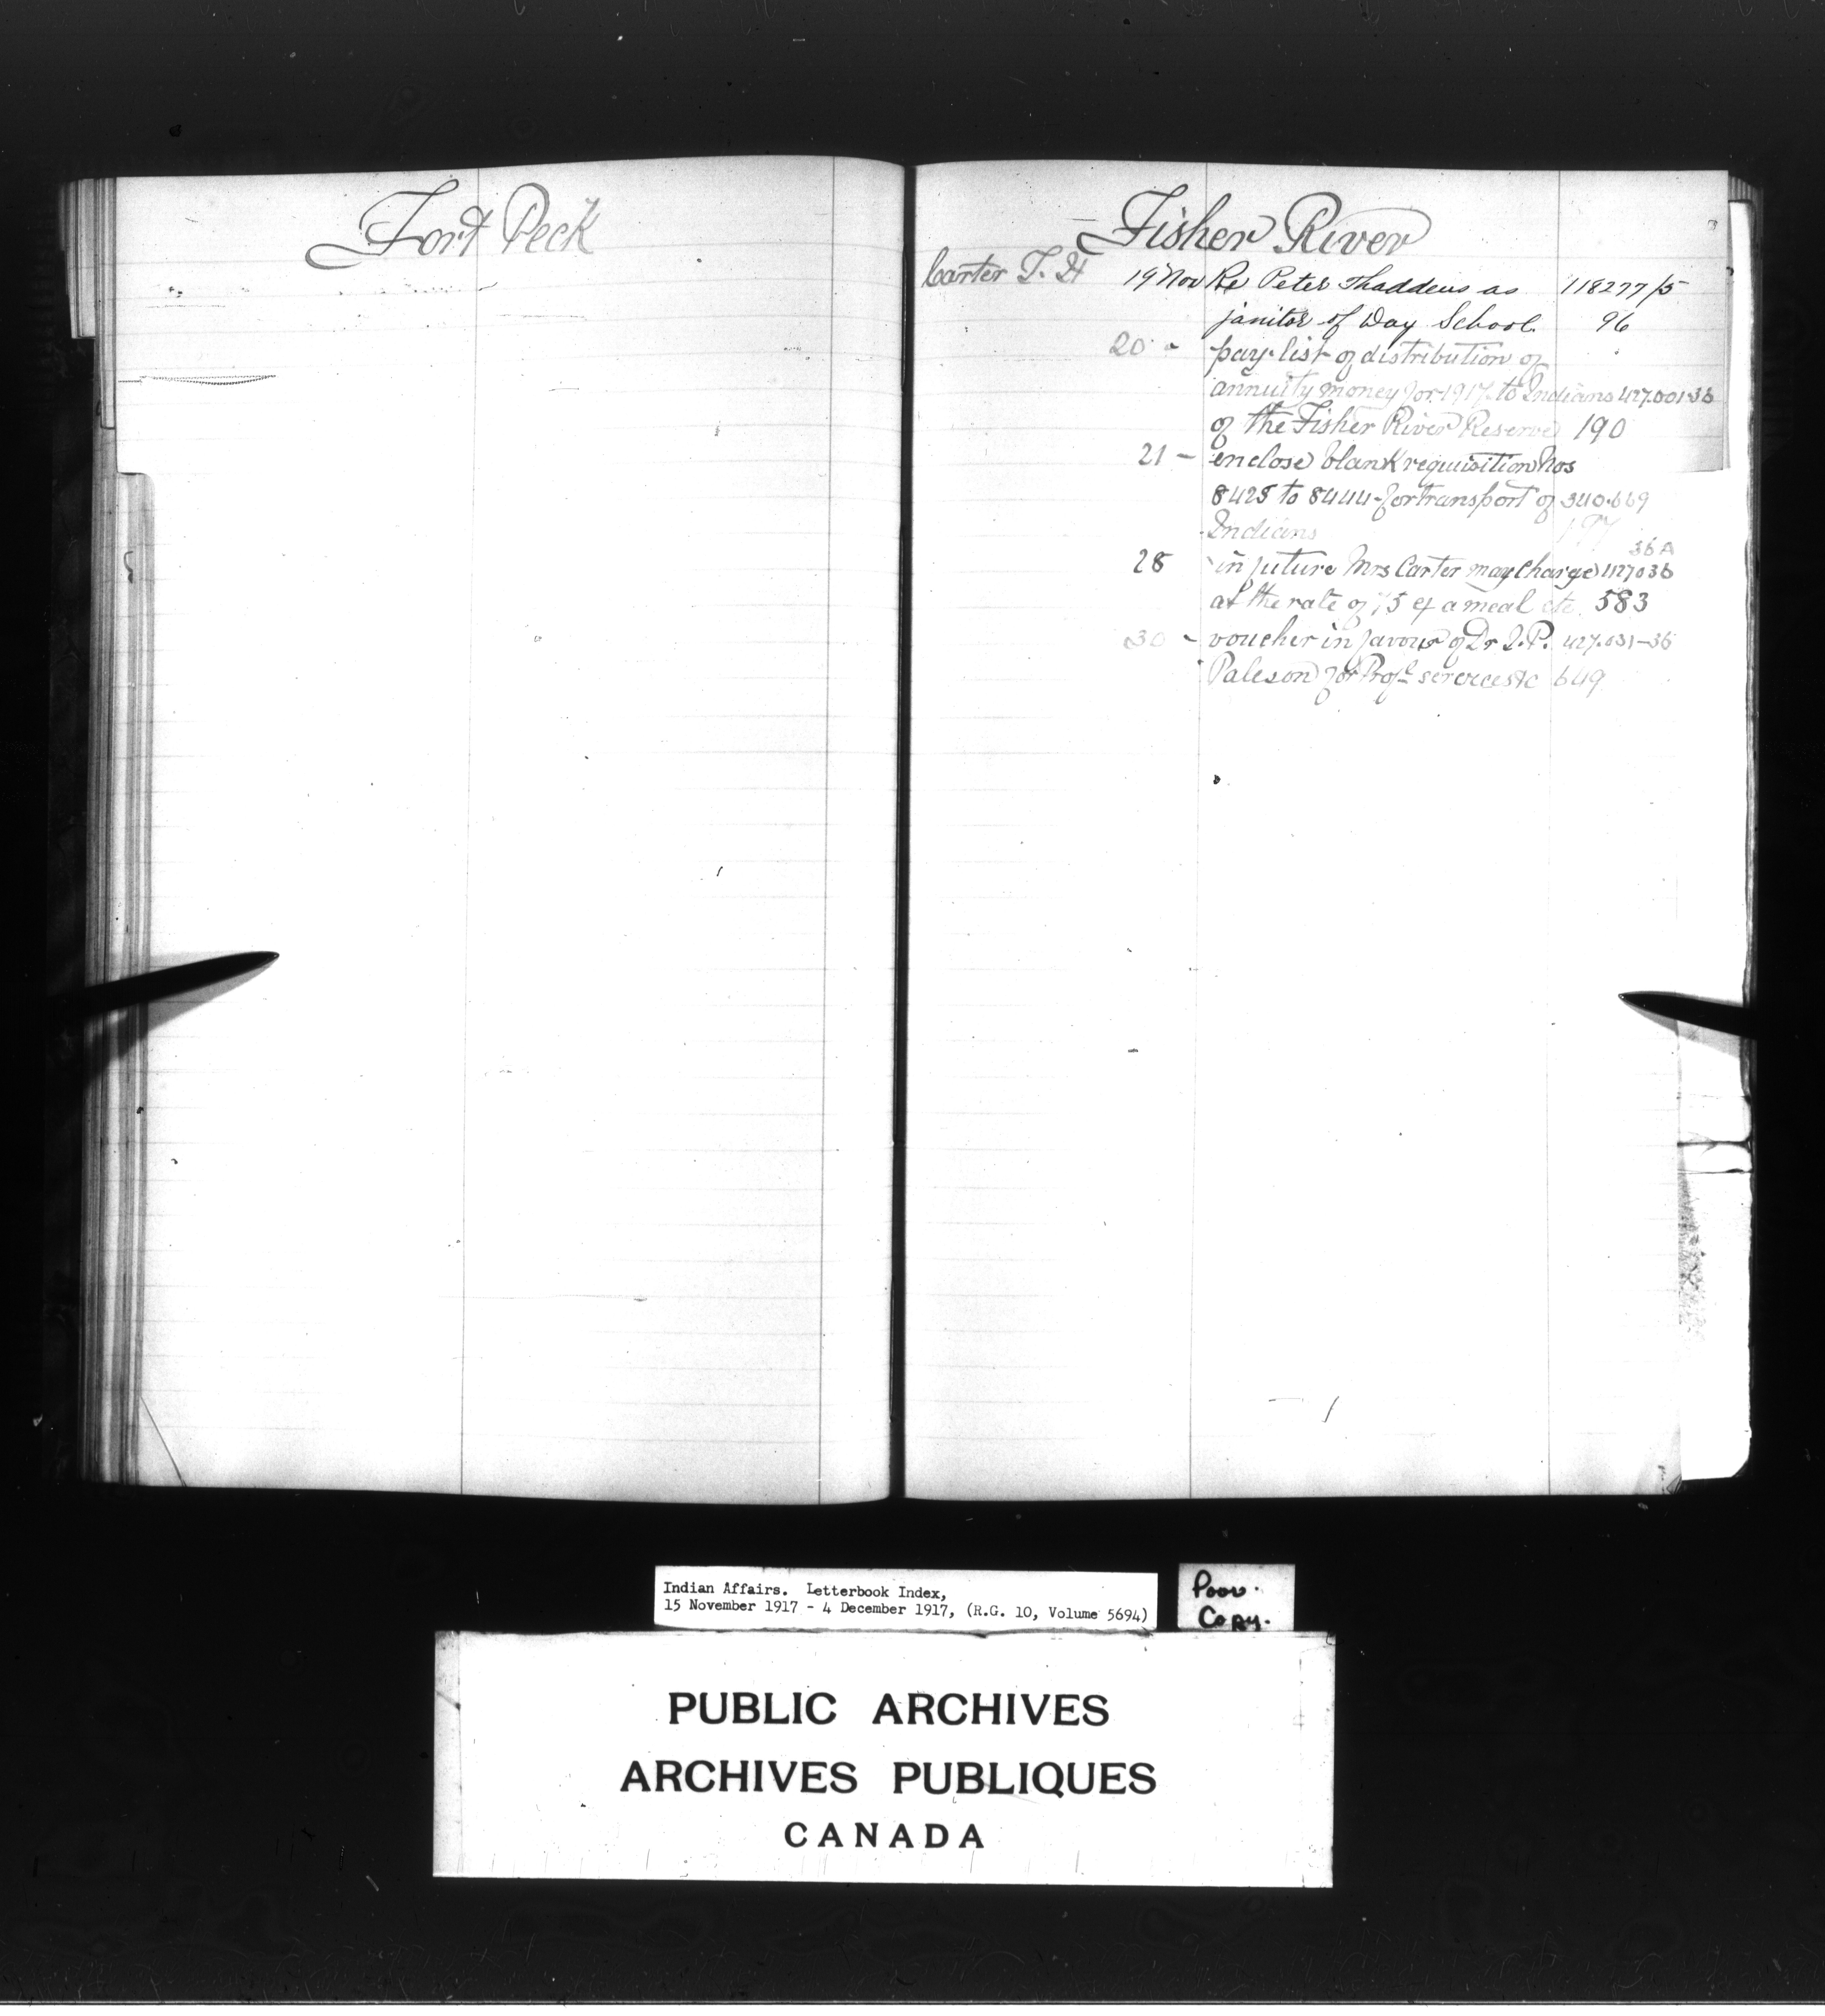 Fort Peck
Fisher River
Carter T. H 19 Nov Re Peter Thaddeus as 118277/5
janitor of Day School. 96
20 " pay-list of distribution of
annuity money for 1917 to Indians 427.001-36
of the Fisher River Reserve 190
21 - enclose blank requisition Nos
8425 to 8444 - for transport of 340.669
Indians 197
36A
28 in future Mrs Carter may charge 427036
at the rate of 75 ¢ a meal etc. 583
30 - voucher in favour of Dr I.P. 427.031-36
Paleson for Profl services etc 649
Indian Affairs. Letterbook Index,
15 November 1917 - 4 December 1917, (R.G. 10, Volume 5694)
Poor
Copy.
PUBLIC ARCHIVES
ARCHIVES PUBLIQUES
CANADA